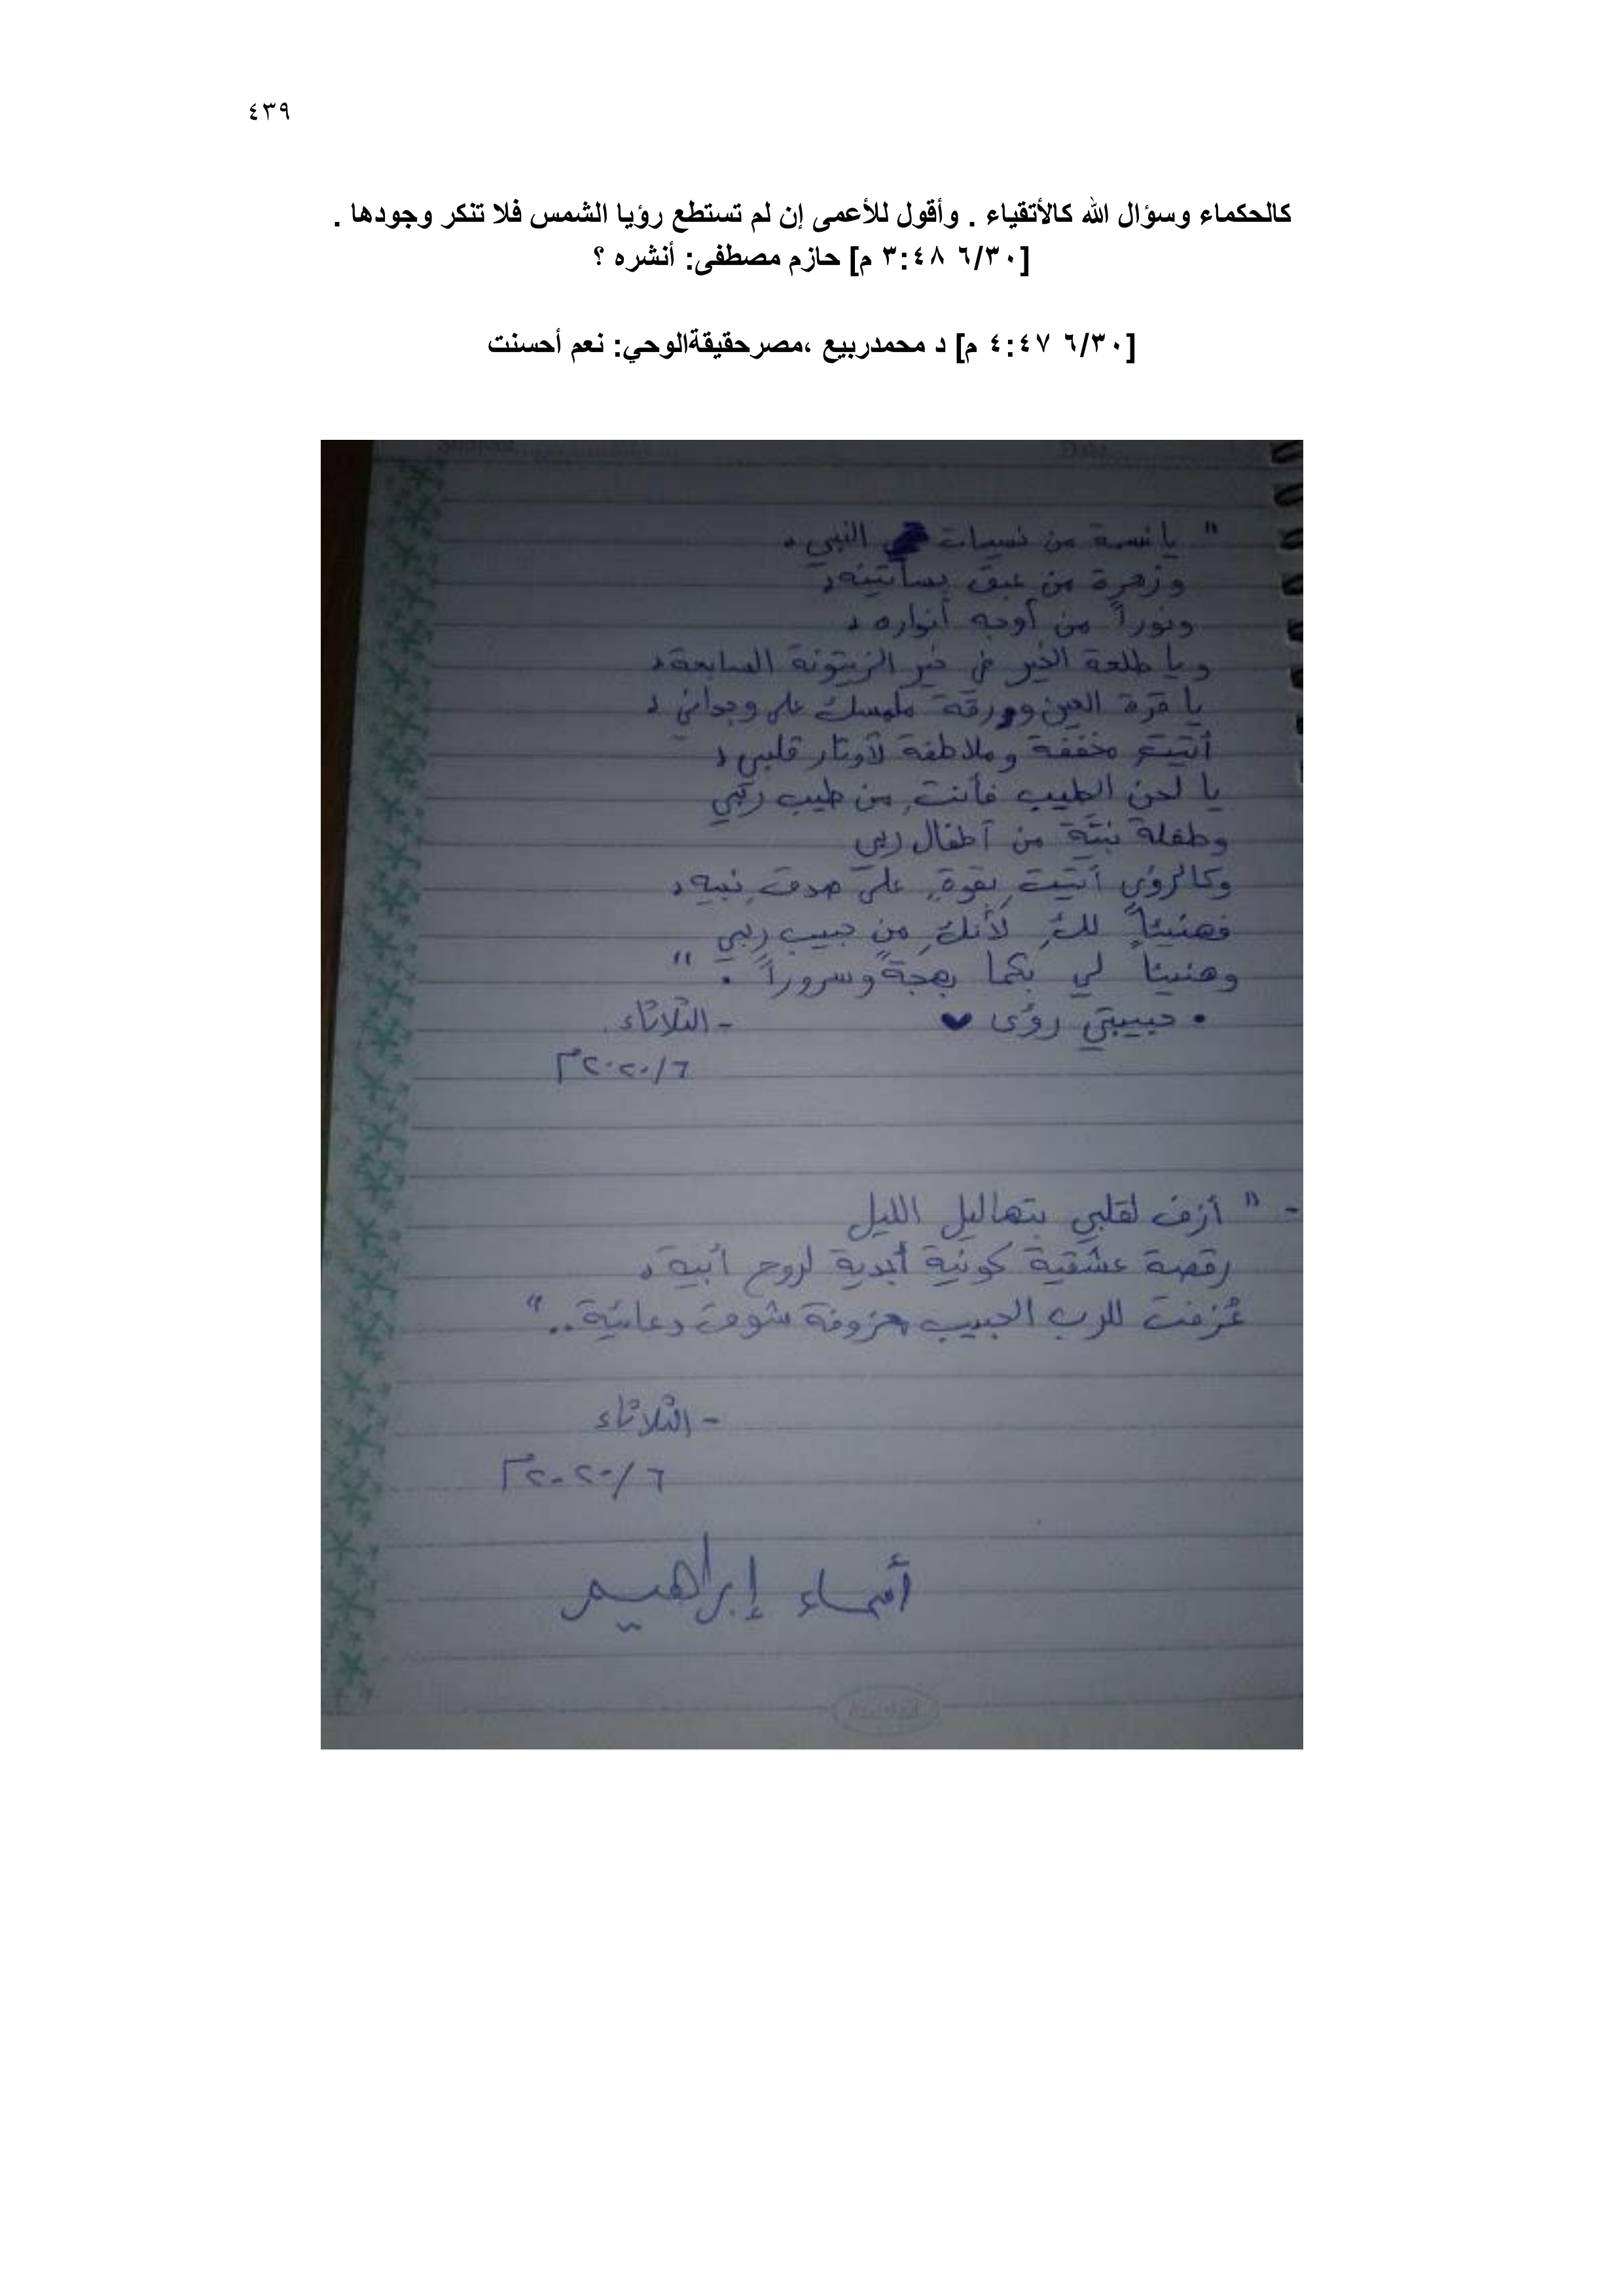 ٤٣٩
كالحكماء وسؤال الله كالأتقياء . وأقول للأعمى إن لم تستطع رؤيا الشمس فلا تنكر وجودها .
[٦/٣٠ ٣:٤٨ م] حازم مصطفى: أنشره ؟
[٦/٣٠ ٤:٤٧ م] د محمدربيع ،مصرحقيقةالوحي: نعم أحسنت
" يا نسمة من نسمات النبي ،
وزهرة من عبق بساتينه ،
ونوراً من أوجه أنواره ،
ويا طلعة الخير في خير الزيتونة السابعة ،
يا قرة العين ورقة ملمسك على وجداني ،
أتيتِ مخففة وملاطفة لأوتار قلبي ،
يا لحن الطيب فأنتِ من طيب ربّي
وطفلة نبتة من أطفال ربي
وكالرؤى أتيتِ بقوةٍ على صدق نبيه ،
فهنيئاً لكِ لأنكِ من حبيب ربي
وهنيئاً لي بكما بهجةً وسروراً . "
• حبيبتي رؤى ♥
- الثلاثاء
٦/٢٠٢٠م
- " أزف لقلبي بتهاليل الليل
رقصة عشقية كونية أبدية لروح أبيه ،
عُزفت للرب الحبيب معزوفة شوق دعائية .. "
- الثلاثاء
٦/٢٠٢٠م
أسماء إبراهيم